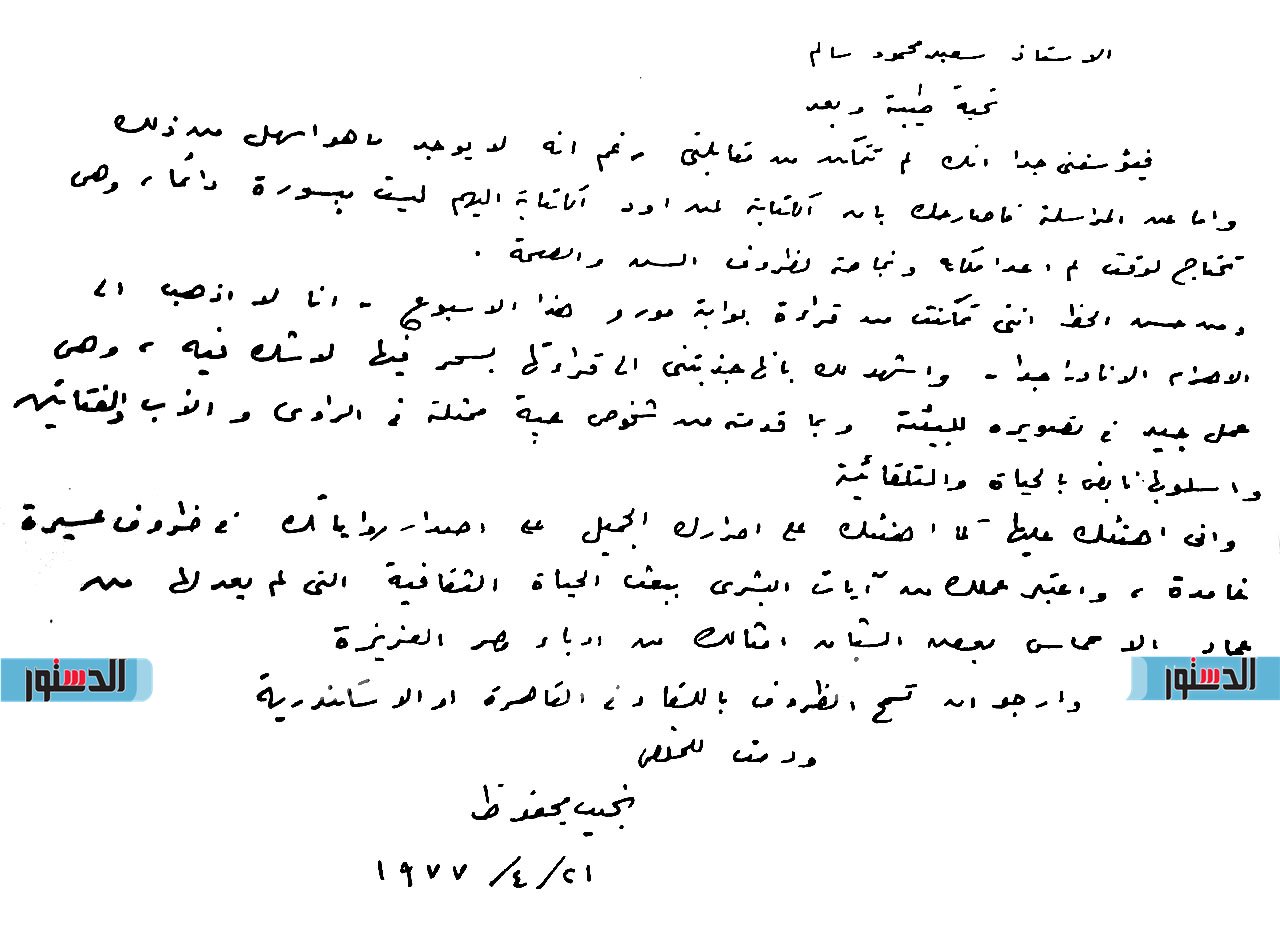 الاستاذ سعيد محمود سالم
تحية طيبة وبعد
فيؤسفنى جدا انك لم تتمكن من مقابلتى رغم انه لا يوجد ما هو اسهل من ذلك
واما عن المراسلة فاصارحك بان الكتابة لمن اود الكتابة اليهم ليست ميسورة دائما، وهى
تحتاج لوقت لم اعد املكه وبخاصة لظروف السن والصحة .
ومن حسن الحظ اننى تمكنت من قراءة بوابة مورو هذا الاسبوع - انا لا اذهب الى
الاهرام الا نادرا جدا - واشهد لك بانها جذبتنى الى قراءتها بسحر فيها لا شك فيه ، وهى
عمل جيد فى تصويره للبيئة وبما قدمته من شخوص حية ممثلة فى الراوى والاب والفتاتين
واسلوبها نابض بالحياة والتلقائية
وانى اهنئك عليها كما اهنئك على اصرارك الجميل على اصدار رواياتك فى ظروف عسيرة
غامدة ، واعتبر عملك من آيات البشرى ببعث الحياة الثقافية التى لم يعد لها من
عماد الا حماس بعض الشبان امثالك من ادباء مصر العزيزة
وارجو ان تسمح الظروف باللقاء فى القاهرة او الاسكندرية
ودمت للمخلص
نجيب محفوظ
٢١/٤/١٩٧٧
الدستور
الدستور